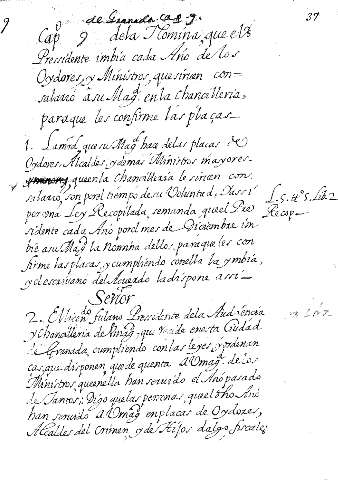 de Granada cap 9.
37
9
Cap.º 9 dela Nomina, que el P.
Presidente imbia cada Año de los
Oydores, y Ministros, que sirven con-
salario à su Mag.d en la Chancilleria,
para que les confirme las plaças
1. La mrd, que su Mag.d haz delas placas de
Oydores Alcaldes, y demas Ministros mayores
que en la Chancilleria le sirven con
salario, son por el tiempo de su Voluntad, Y assi
por una Ley Recopilada, se manda que el Pre
sidente cada Año por el mes de Diciembre im-
bie a su Mag.d la nomina dellos, para que les con
firme las plaças, y cumpliendo con ella la ymbia,
y el escrivano del Acuerdo la dispone assi
L. 5. tt.º 5. Lib. 2
Recop.
Señor
2. El licen.do fulano Presidente dela Audiencia
y Chancilleria de Vmag.d, que reside en esta Ciudad
de Granada, cumpliendo con las leyes, y ordenan
cas, que disponen, que de quenta a Vmag.d de los
Ministros, que en ella han servido el Año pasado
de tantos; Digo que las personas, que el dho Año
han servido à Vmag.d en placas de Oydores,
Alcaldes del Crimen, y de Hijos dalgo, fiscales